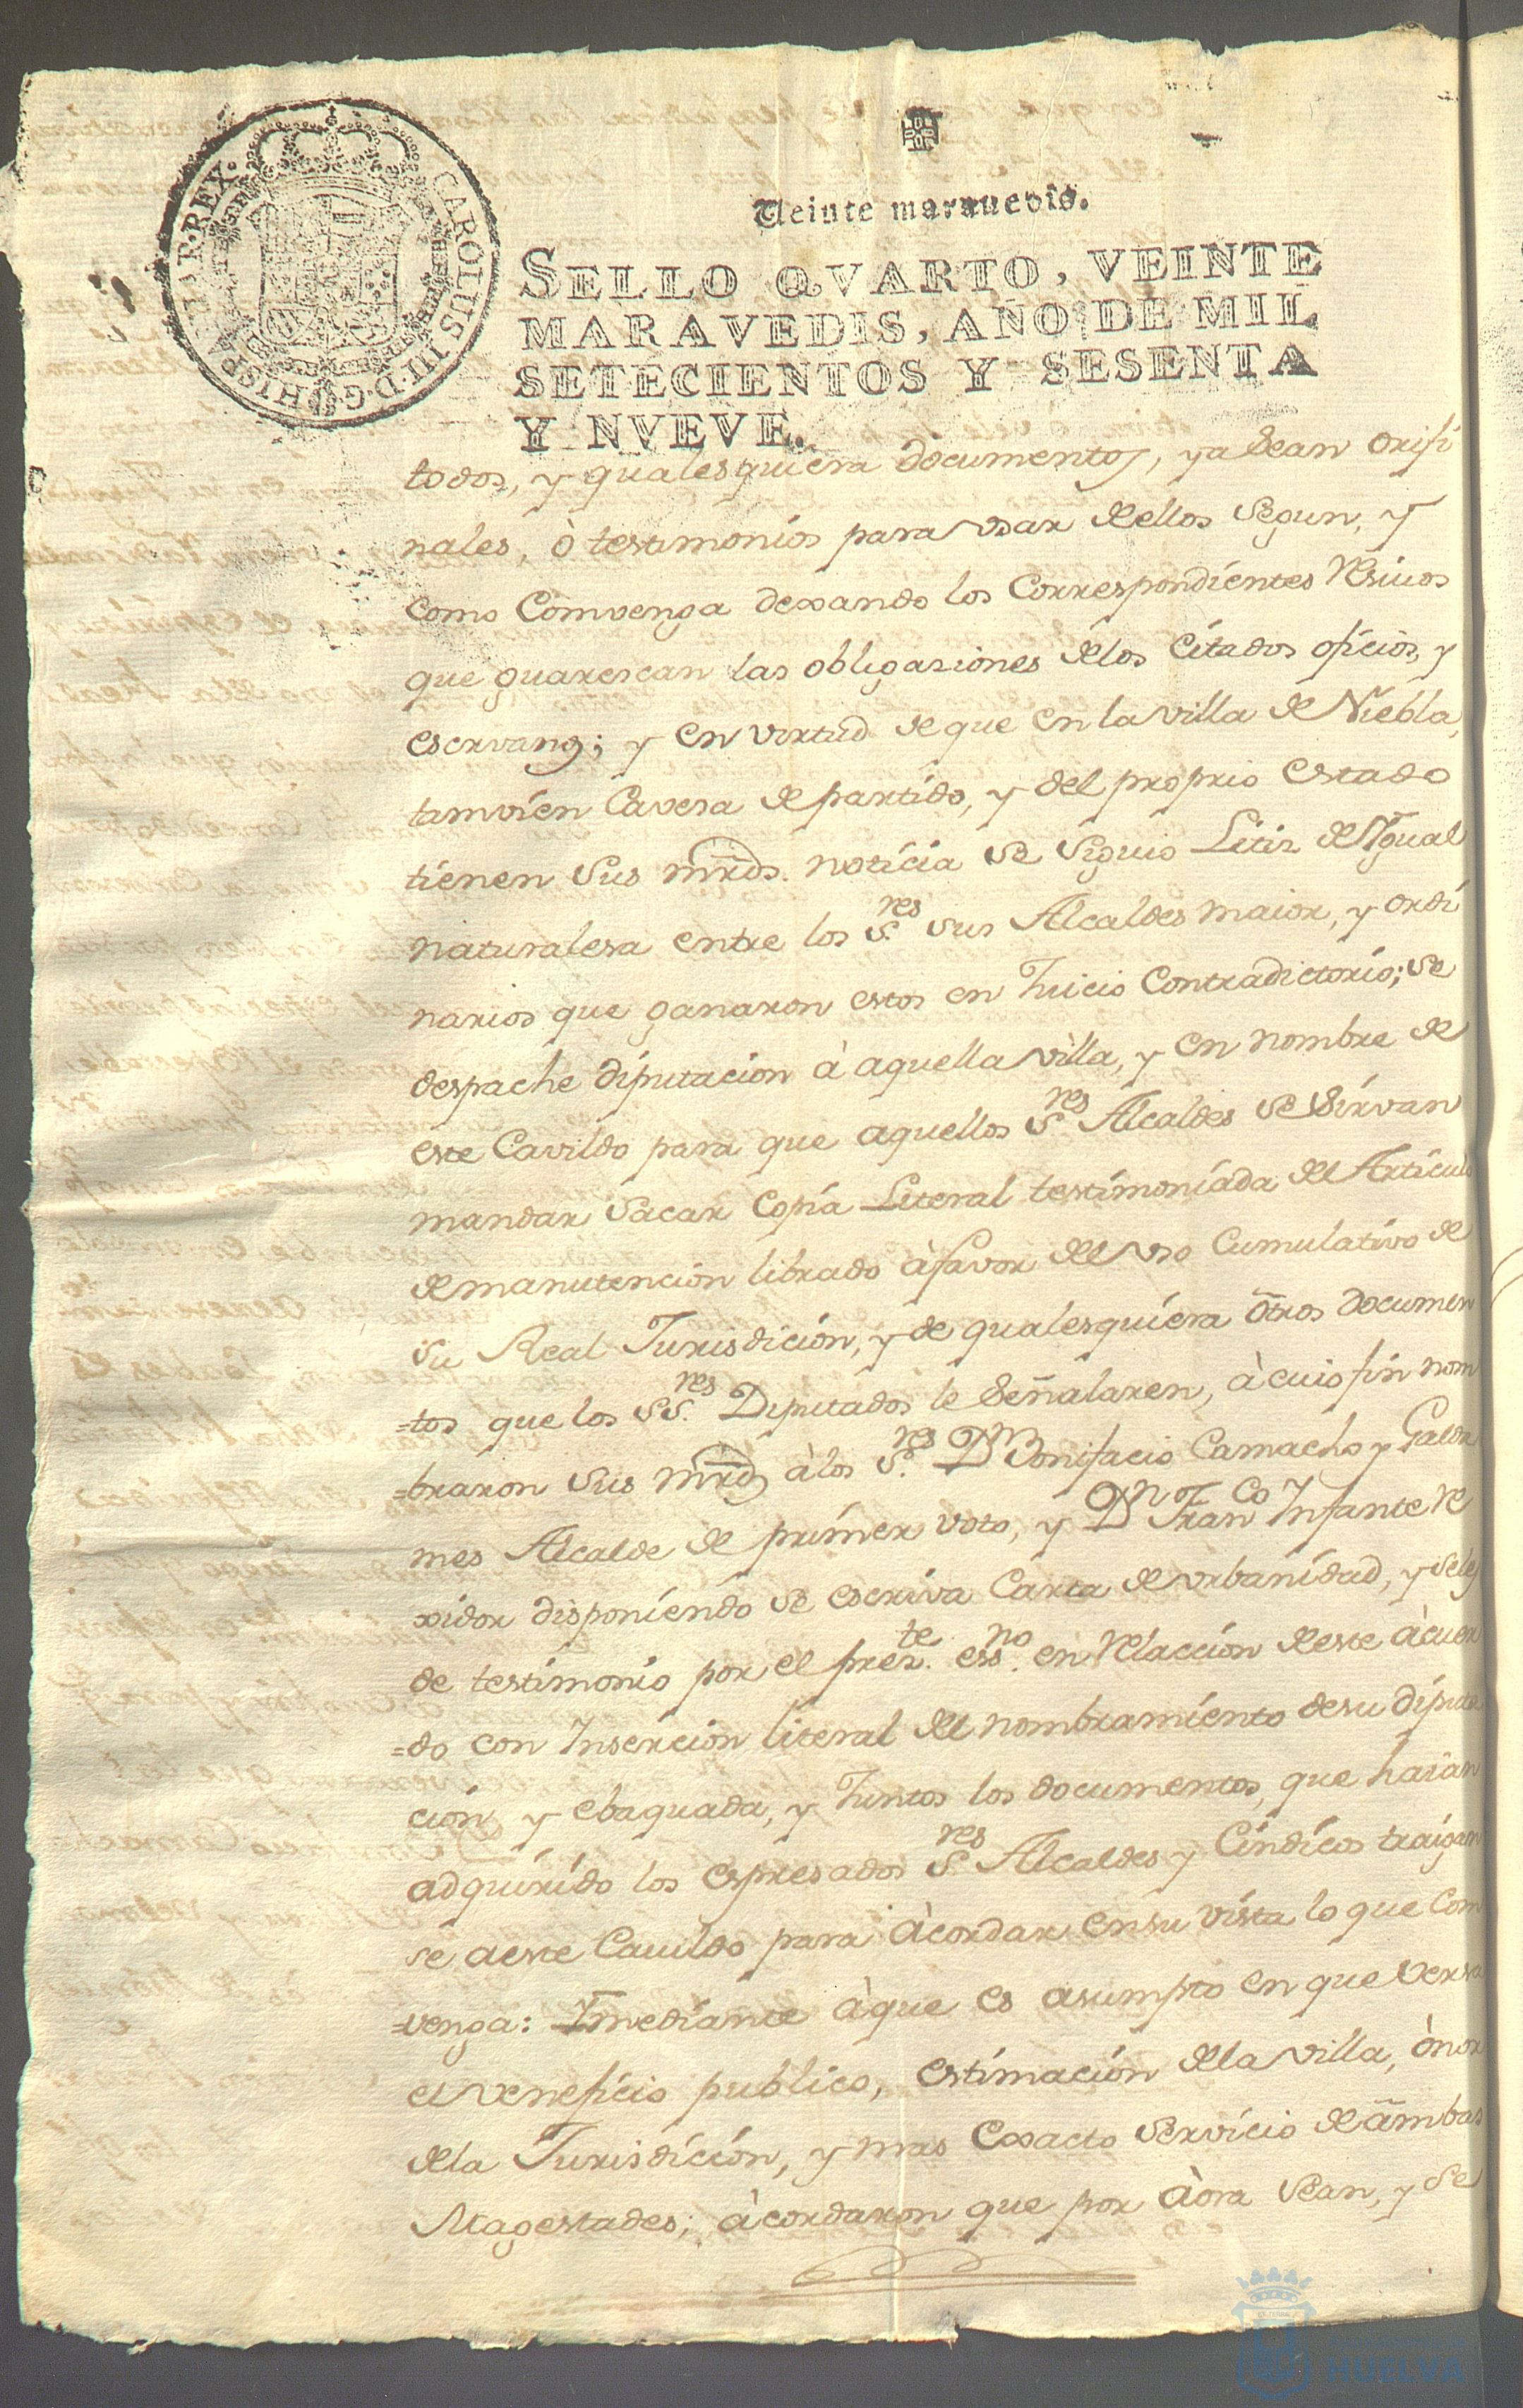 CAROLUS III·D·G·HISPANIAR·REX·
Veinte marauedis.
SELLO QVARTO, VEINTE
MARAVEDIS, AÑO DE MIL
SETECIENTOS Y SESENTA
Y NVEVE.
todos, y qualesquiera documentos, ya Sean orifi
nales, ò testimonios para vsar dellos Segun, y
como Comvenga dexando los Correspondientes Resiuos
que guarescan las obligasiones delos Citados oficios, y
escrvanos; y en virtud de que en la villa de Niebla,
tamvien Cavesa de partido, y del proprio estado
tienen Sus mrds. noticia se Siguio Litis de Ygual
naturalesa entre los S.res Sus Alcaldes maior, y ordi
narios que ganaron estos en Juicio Contradictorio; se
despache diputacion à aquella villa, y en nombre de
este Cavildo para que aquellos S.res Alcaldes se Sirvan
mandar Sacar Copia Literal testimoniada del Articulo
de manutencion librado à favor del vso Cumulativo de
su Real Jurisdicion, y de qualesquiera otros documen
=tos que los SS.res Diputados le Señalaren, à cuio fin nom
=braron Sus mrds à los S.res Dn Bonifacio Camacho y Galdr
mes Alcalde de primer voto, y Dn Franco Infante Re
xidor disponiendo se escriva Carta de vrbanidad, y seles
de testimonio por el preste. essno. en Relaccion deste àcuer
=do con Insercion literal del nombramiento desu diputa
cion, y ebaquada, y Juntos los documentos, que haian
adquirido los espresados S.res Alcaldes y Cindicos traigan
se aeste Cauildo para àcordar ensu vista lo que Com
=venga: Ymediante àque es asumpto en que versa
el veneficio publico, estimacion dela villa, ònor
dela Jurisdicion, y mas Exacto Servicio de ambas
Magestades; àcordaron que por àora Sean, y se
HUELVA